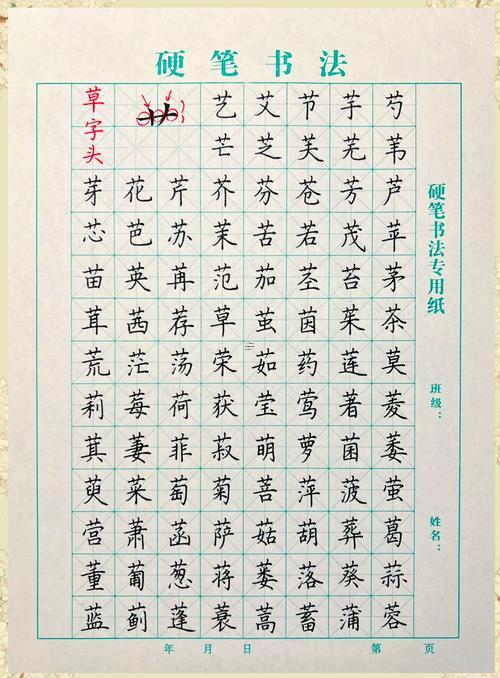 硬笔书法
草字头
艺艾节芋芍
芒芝芙芜苇
芽花芹芥芬苍芳芦
芯芭苏茉苦若茂苹
苗英苒范茄茎苔茅
茸茜荐草茧茵茱茶
荒茫荡荣茹药莲莫
莉莓荷获莹莺著菱
萁萋菲菽萌萝菌萎
萸菜萄菊菩萍菠萤
营萧菡萨菇葫葬葛
董葡葱蒋蒌落葵蒜
蓝蓟蓬蓑蒿蓄蒲蓉
硬笔书法专用纸
班级：
姓名：
年 月 日
第 页